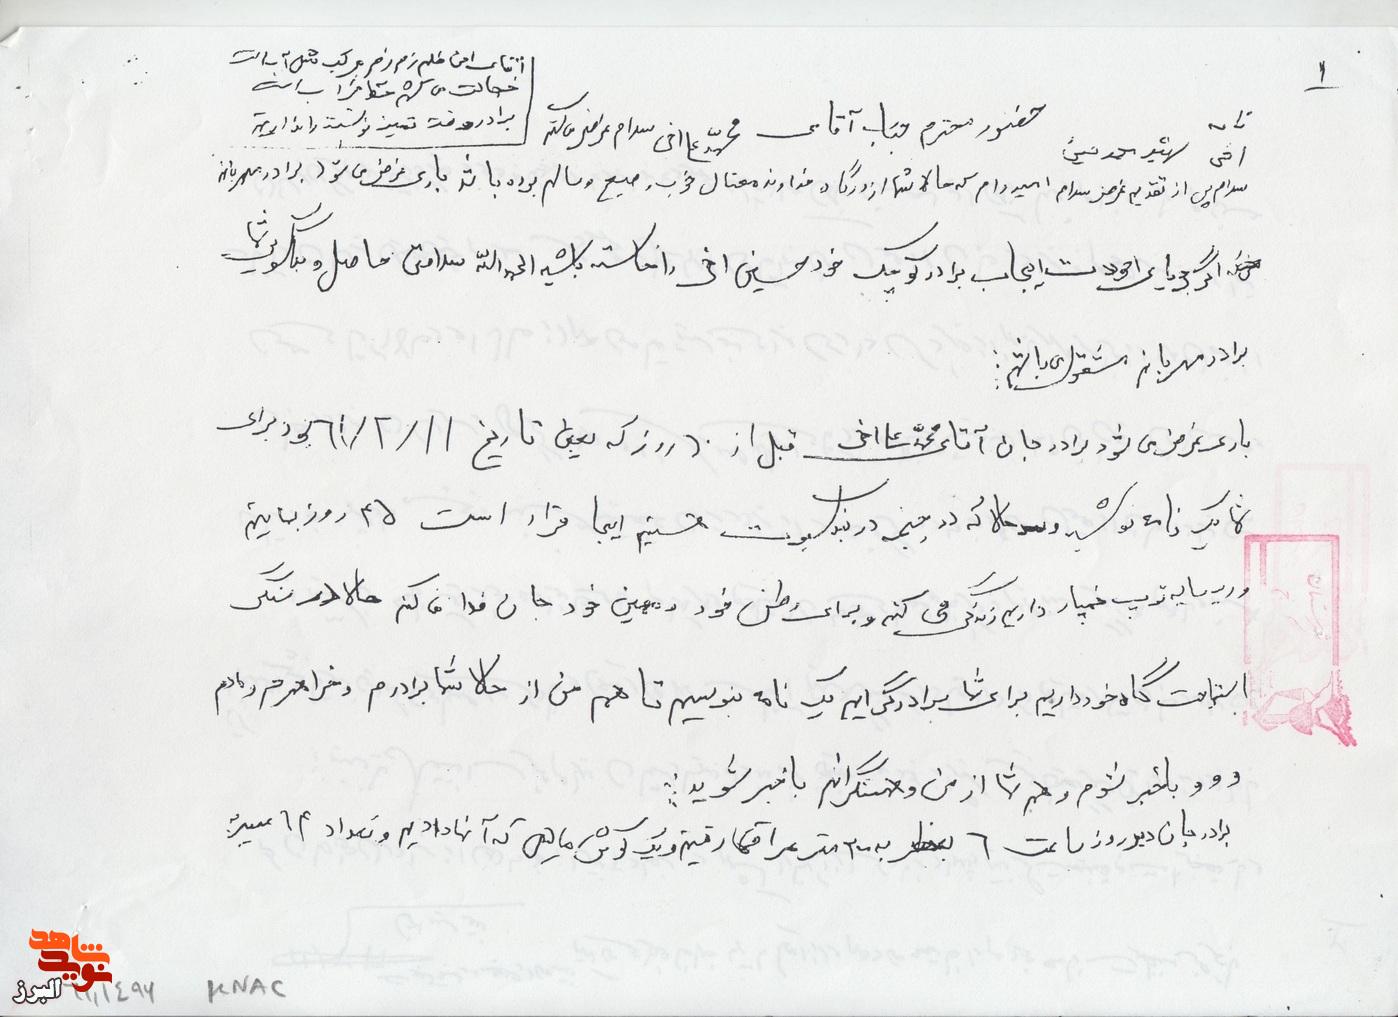 ۱
آقای اخی قلم زیر و زبر مرکب مثل آب است
خجالت می کشم خط خراب است
برادر وقت تمیز نوشتن را نداریم
نامه
اخی شهید محمد حسین
حضور محترم جناب آقای محمد علی اخی سلام عرض می کنم
سلام پس از تقدیم عرض سلام امیدوارم که حالا شما از درگاه خداوند متعال خوب و صحیح و سالم بوده باشد باری عرض می شود برادر مهربانم
اگر جویای احوالات اینجانب برادر کوچک خود حسین اخی را خواسته باشید الحمدالله سلامتی حاصل و بدعاگویی شما
برادر مهربانم مشغول می باشم :
باری عرض می شود برادر جان آقای محمد علی اخی قبل از ۱۰ روز که یعنی تاریخ ۶۱/۲/۱۱ بود برای
شما یک نامه نوشتید و حالا که در جبهه در نوبت هستیم اینجا قرار است ۴۵ روز بمانیم
و زیر سایه توپ خمپاره داریم زندگی می کنیم و برای وطن خود و میهن خود جان فدا می کنم حالا در سنگر
استراحت گاه خود داریم برای شما برادر گرامیم یک نامه بنویسیم تا هم من از حالا شما برادرم و خواهرم و مادرم
و و و باخبر شوم و هم شما از من و همسنگرانم با خبر شوید :
برادر جان دیروز ساعت ۶ به ۳۰ متر عراقی ها رفتیم و یک گوش مالی که به آنها دادیم و تعداد ۶۴ اسیر
شاهد
نوید
البرز
KNAC